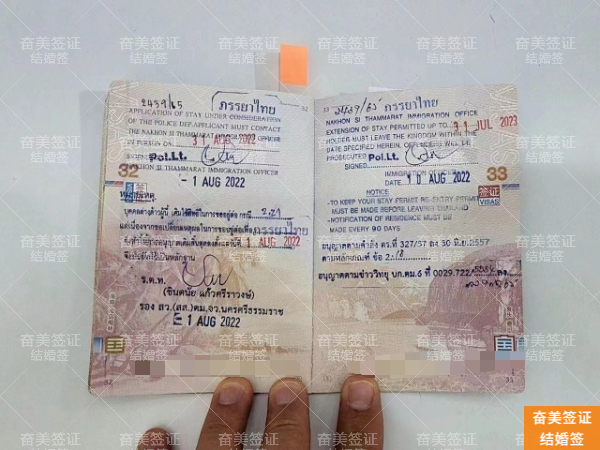 2439/65 ภรรยาไทย
32
APPLICATION OF STAY UNDER CONSIDERATION
OF THE POLICE DEPARTMENT APPLICANT MUST CONTACT
THE NAKHON SI THAMMARAT OFFICE
IN PERSON ON 31 AUG 2022
Pol.Lt.
32
NAKHON SI THAMMARAT IMMIGRATION OFFICER
- 1 AUG 2022
หมายเหตุ
บุคคลต่างด้าวผู้นี้
ภรรยาไทย
1 AUG 2022
ร.ต.ท.
(ชินดนัย แก้วศรีราวงษ์)
รอง สว.(สส.)ตม.จว.นครศรีธรรมราช
1 AUG 2022
33 2439/65 ภรรยาไทย
NAKHON SI THAMMARAT IMMIGRATION OFFICE
EXTENSION OF STAY PERMITTED UP TO 31 JUL 2023
HOLDER MUST LEAVE THE KINGDOM WITHIN THE
DATE SPECIFIED HEREIN. OFFENDERS WILL BE
PROSECUTED Pol.Lt.
SIGNED
IMMIGRATION OFFICER
DATE 10 AUG 2022
33
NOTICE
签证
VISAS
-TO KEEP YOUR STAY PERMIT RE-ENTRY PERMIT
MUST BE MADE BEFORE LEAVING
-NOTIFICATION OF RESIDENCE MUST BE
MADE EVERY 90 DAYS
อนุญาตตามคำสั่ง ตร.ที่ 327/57 ลง 30 มิ.ย.2557
ตามหลักเกณฑ์ ข้อ 2.18
อนุญาตตามข่าววิทยุ บก.ตม.6 ที่ 0029.722/
奋美签证
结婚签